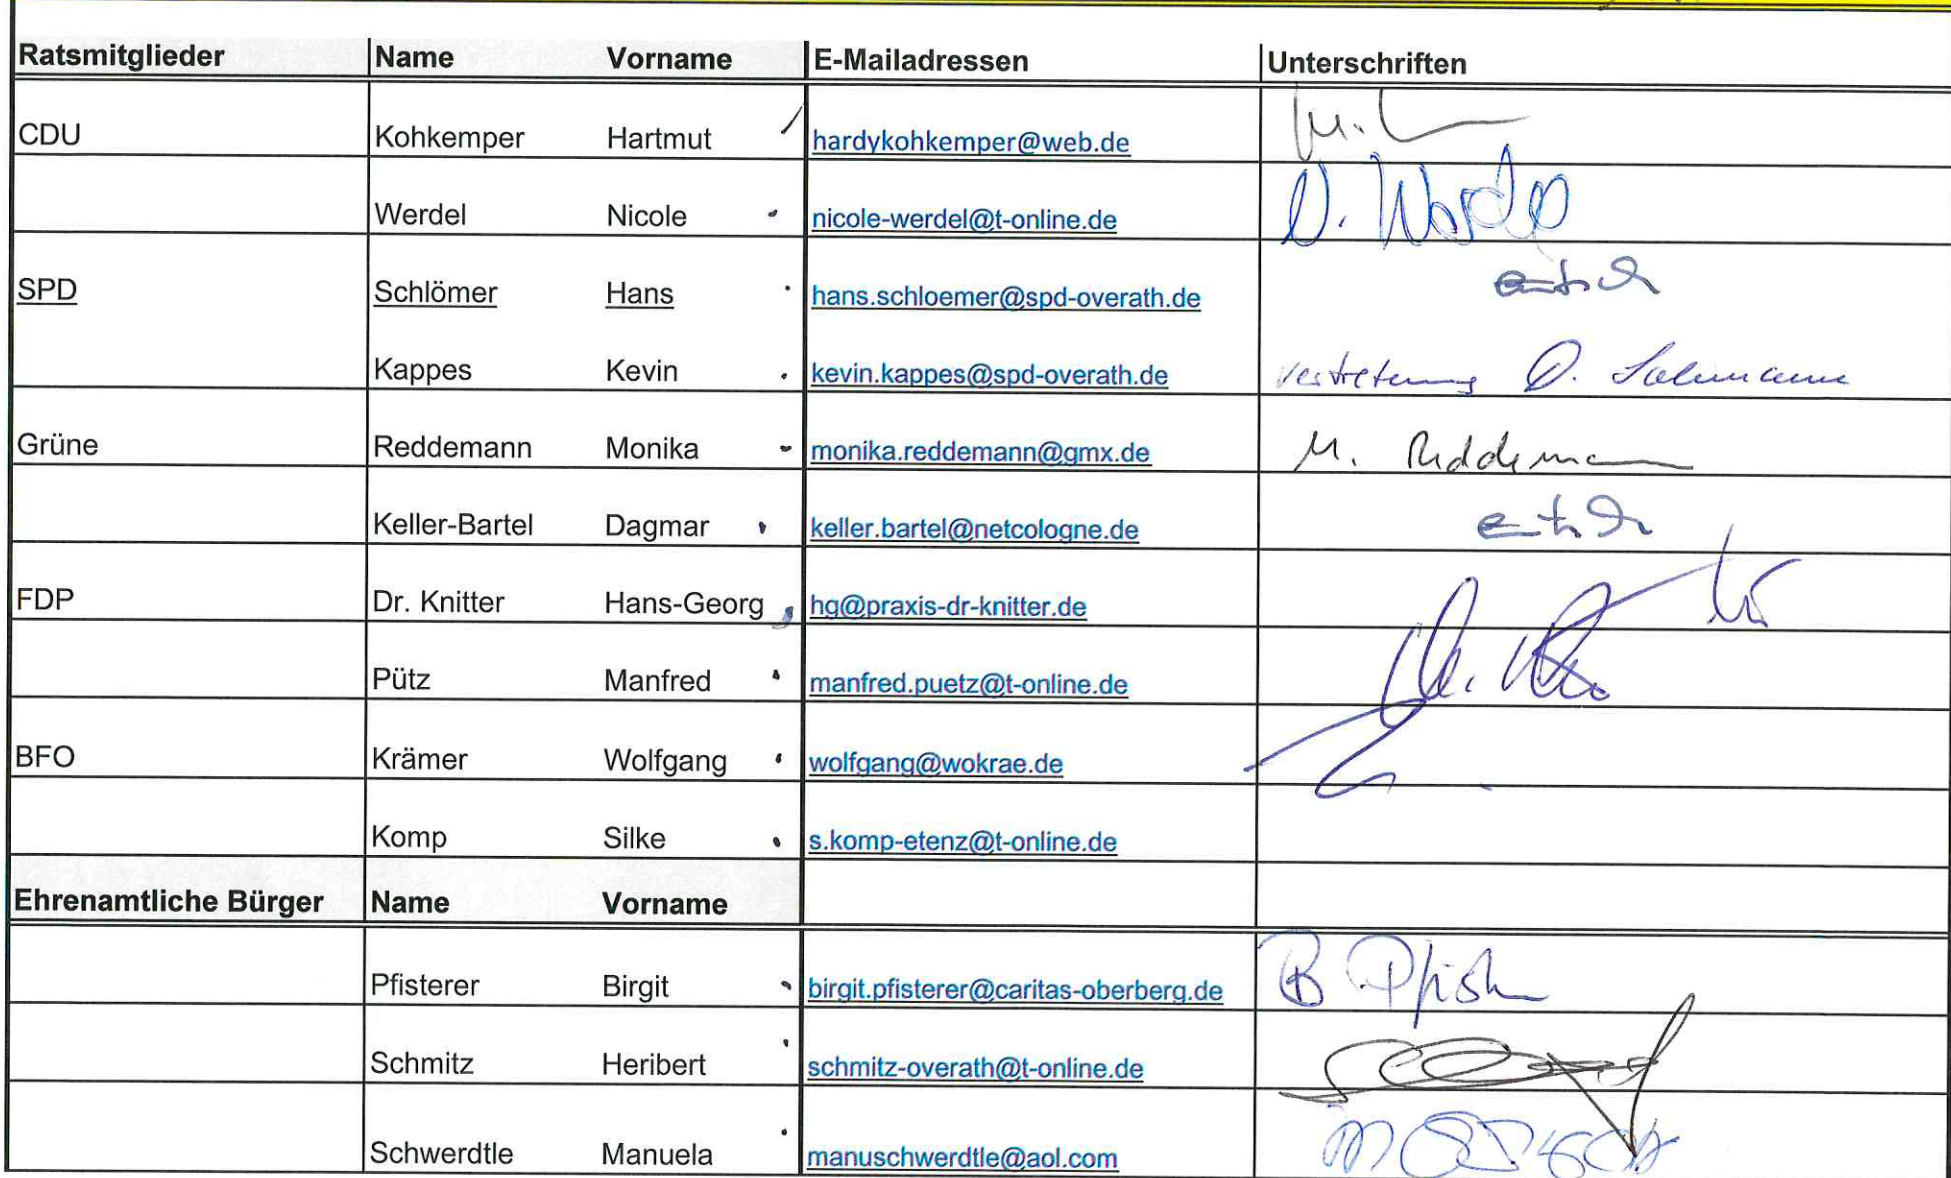 Ratsmitglieder Name Vorname E-Mailadressen Unterschriften
CDU Kohkemper Hartmut hardykohkemper@web.de
Werdel Nicole nicole-werdel@t-online.de N. Werdel
SPD Schlömer Hans hans.schloemer@spd-overath.de
Kappes Kevin kevin.kappes@spd-overath.de Vertretung
Grüne Reddemann Monika monika.reddemann@gmx.de M. Reddemann
Keller-Bartel Dagmar keller.bartel@netcologne.de
FDP Dr. Knitter Hans-Georg hg@praxis-dr-knitter.de
Pütz Manfred manfred.puetz@t-online.de
BFO Krämer Wolfgang wolfgang@wokrae.de
Komp Silke s.komp-etenz@t-online.de
Ehrenamtliche Bürger Name Vorname
Pfisterer Birgit birgit.pfisterer@caritas-oberberg.de
Schmitz Heribert schmitz-overath@t-online.de
Schwerdtle Manuela manuschwerdtle@aol.com